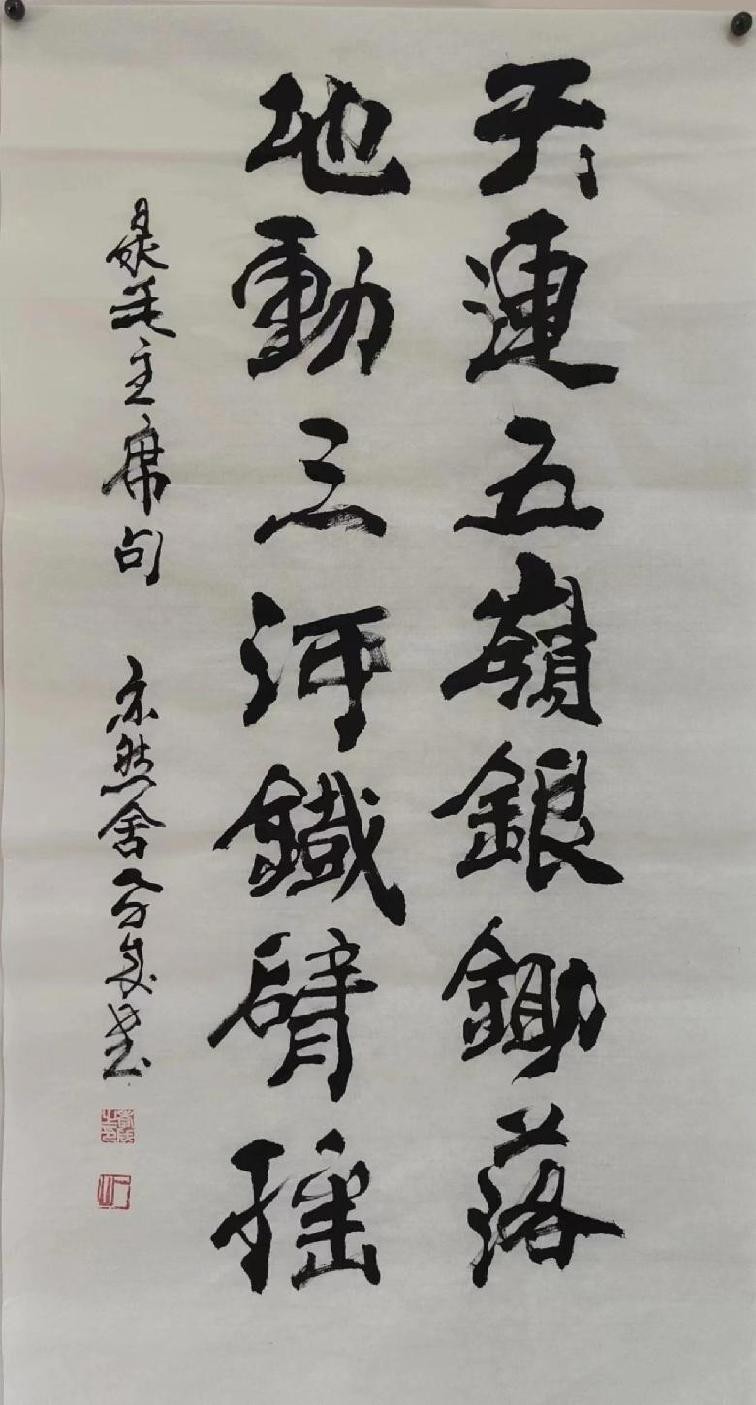 天連五嶺銀鋤落
地動三河鐵臂搖
毛主席句 亦然舍